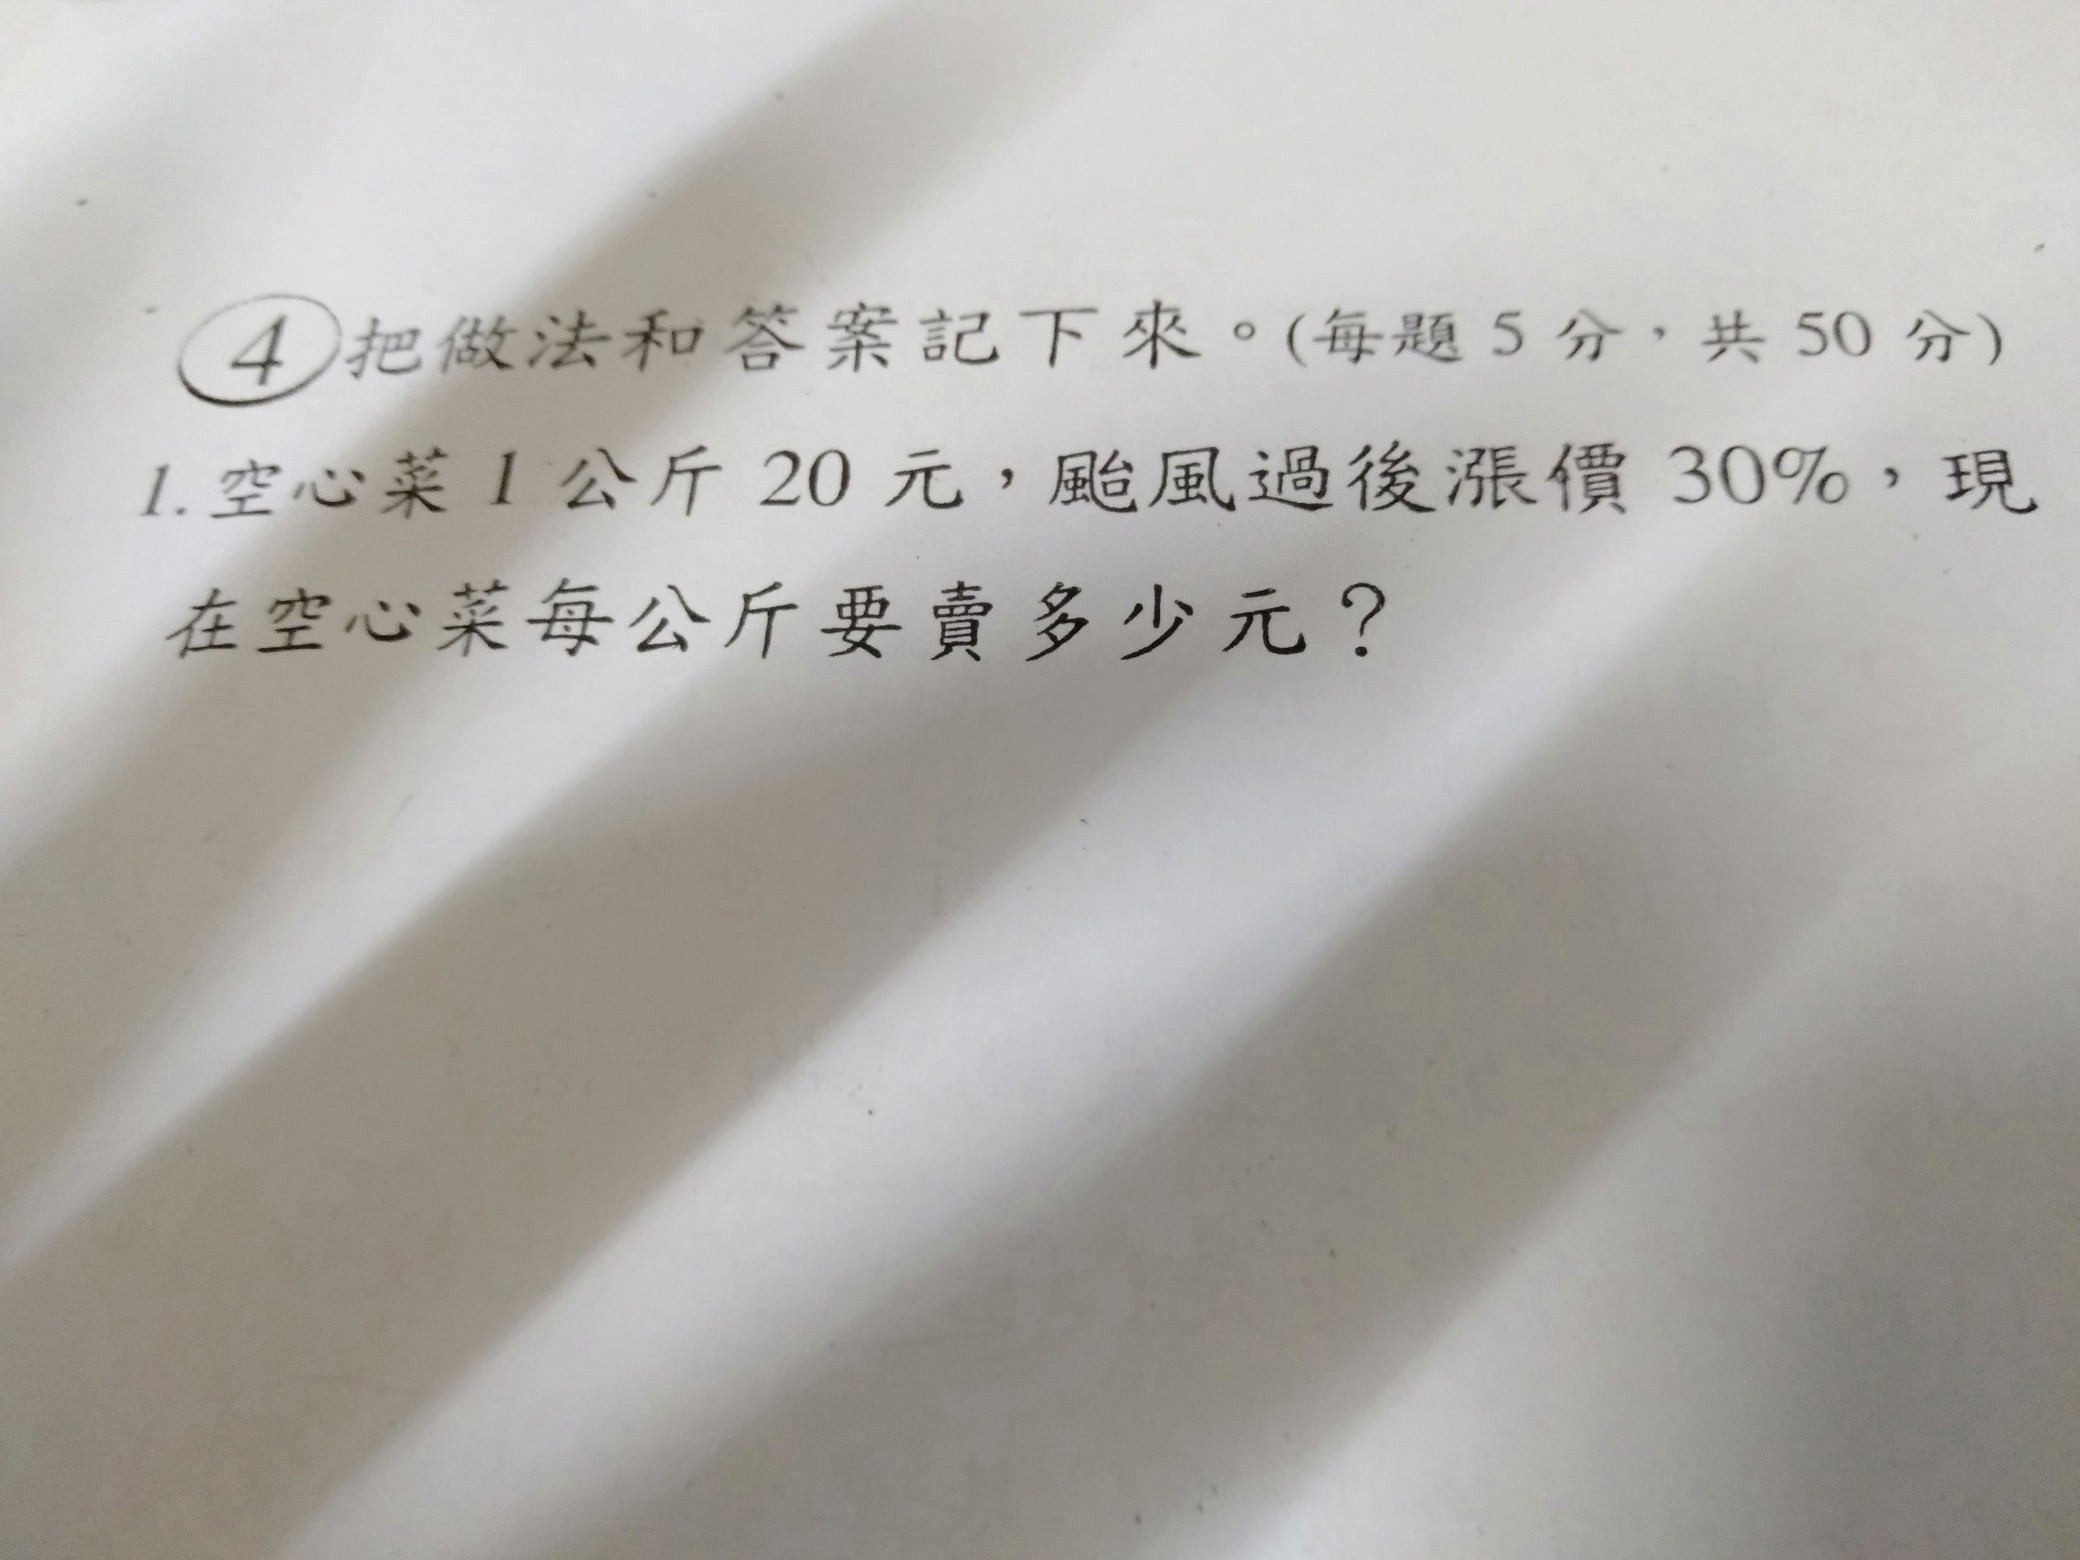 ④把做法和答案記下來。(每題 5 分，共 50 分)
1.空心菜 1 公斤 20 元，颱風過後漲價 30%，現
在空心菜每公斤要賣多少元？